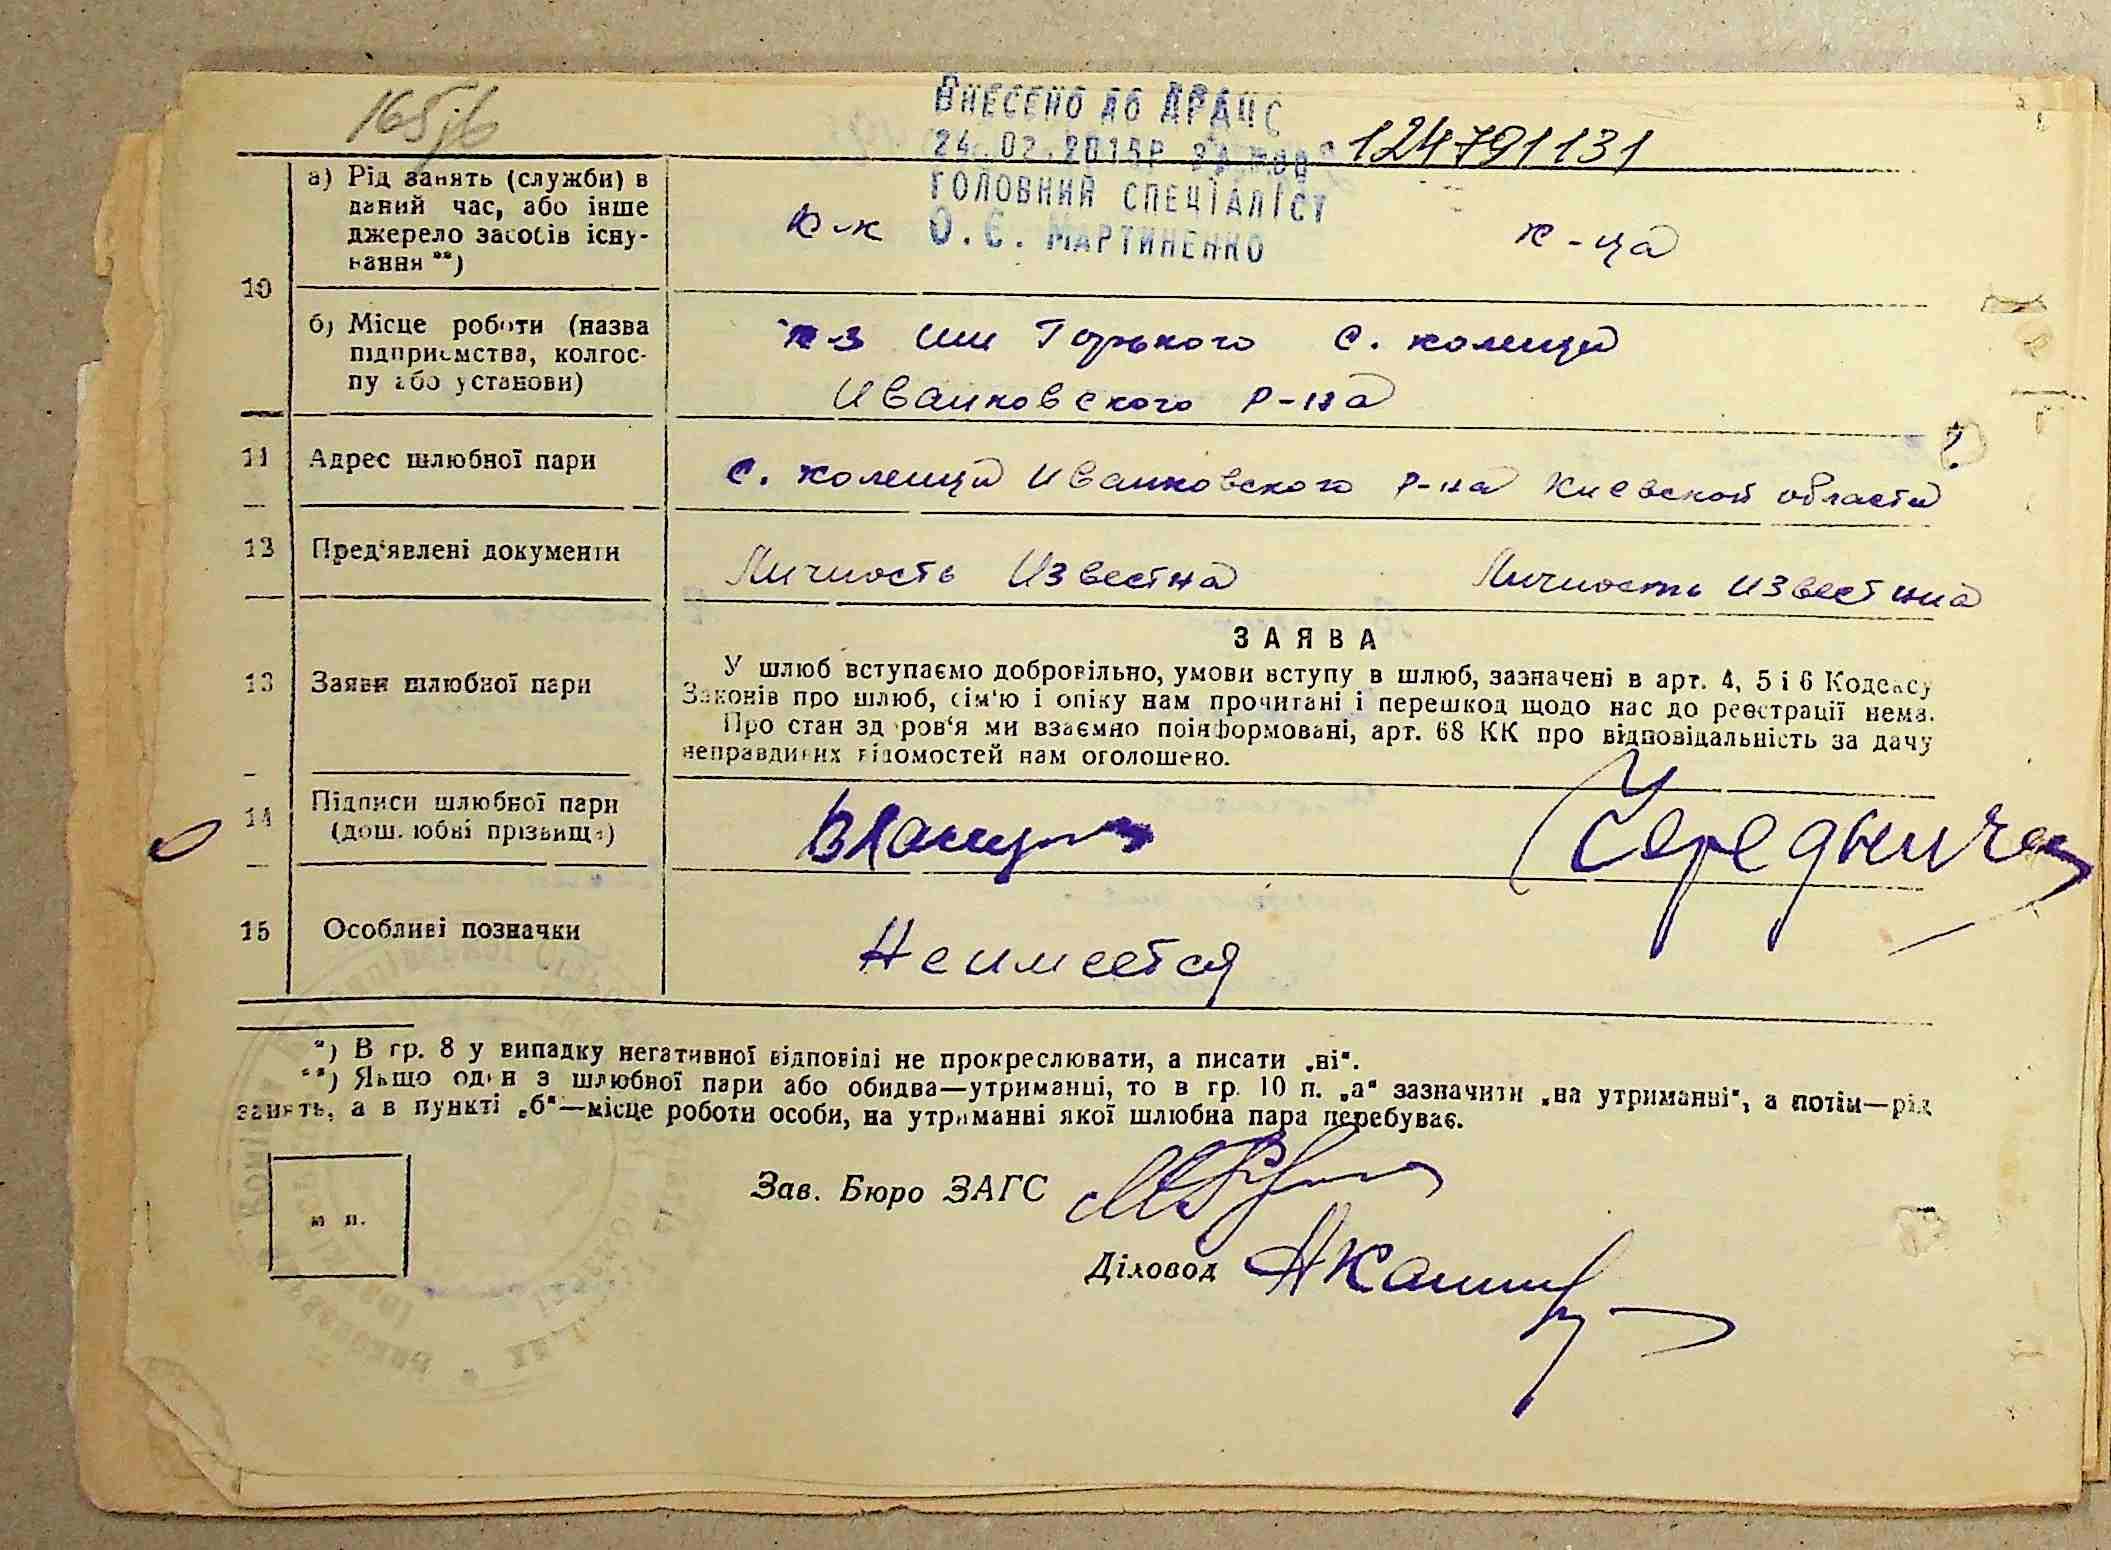 165
ВНЕСЕНО ДО ДРАЦС
24.02.2015Р ЗА №00 124791131
ГОЛОВНИЙ СПЕЦІАЛІСТ
О.Є. МАРТИНЕНКО
10
а) Рід занять (служби) в
даний час, або інше
джерело засобів існу-
вання **)
к-к
к-ца
б) Місце роботи (назва
підприємства, колгос-
пу або установи)
к-з им Горького с. коленци
Иванковского р-на
11 Адрес шлюбної пари
с. коленци Иванковского р-на Киевской области
12 Пред'явлені документи
Личность Известна Личность Известна
13 Заяви шлюбної пари
ЗАЯВА
У шлюб вступаємо добровільно, умови вступу в шлюб, зазначені в арт. 4, 5 і 6 Кодексу
Законів про шлюб, сім'ю і опіку нам прочитані і перешкод щодо нас до реєстрації нема.
Про стан здоров'я ми взаємно поінформовані, арт. 68 КК про відповідальність за дачу
неправдивих відомостей нам оголошено.
14 Підписи шлюбної пари
(дошлюбні прізвища)
15 Особливі позначки
Не имеется
*) В гр. 8 у випадку негативної відповіді не прокреслювати, а писати „ні".
**) Якщо один з шлюбної пари або обидва—утриманці, то в гр. 10 п. „а" зазначити „на утриманні", а потім—рід
занять, а в пункті „б"—місце роботи особи, на утриманні якої шлюбна пара перебуває.
м п.
Зав. Бюро ЗАГС
Діловод